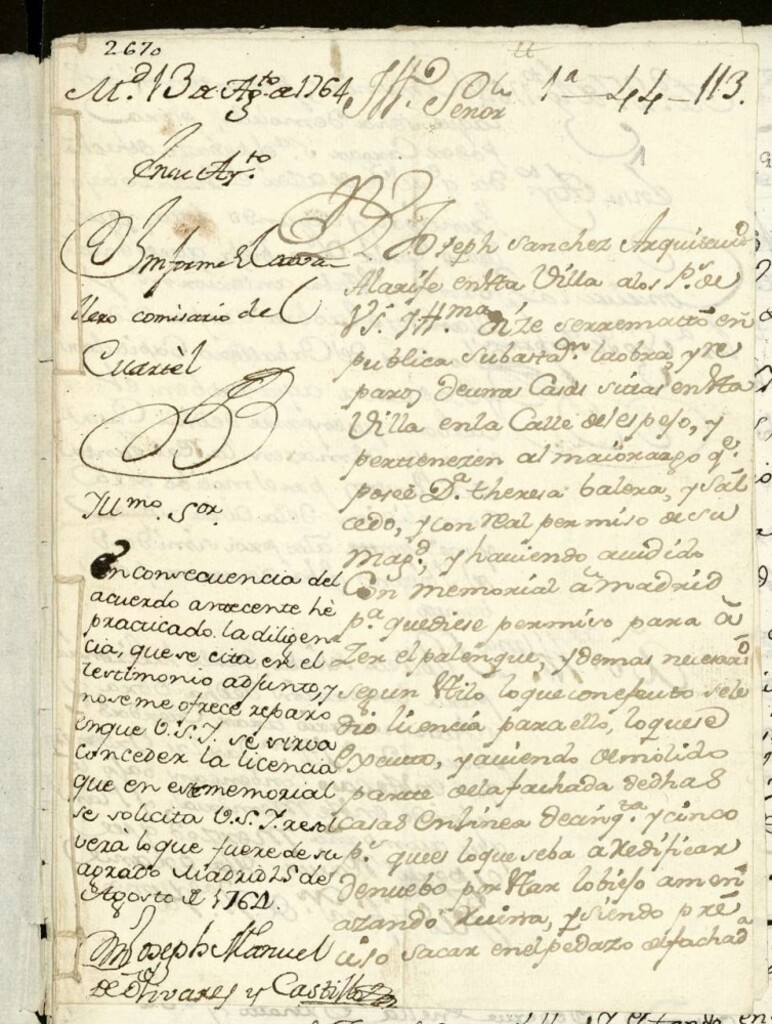 2670
M.d 13 de Ag.to de 1764
Ill.e Señor
1a - 44 - 113.
En su Ay.to
Informe el Cava
llero comisario de
Cuartèl
Yllmo. Sor.
En consecuencia del
acuerdo antecente hè
practicado la diligen
cia, que se cita en el
testimonio adjunto, y
no se me ofrece reparo
en que V.S.I. se sirva
conceder la licencia
que en este memorial
se solicita V.S.I. resol
verà lo que fuere de su
agrado Madrid 25 de
Agosto de 1764.
Joseph Manuel
de Olivares y Castillo
Joseph Sanchez Arquitecto
Alarife en esta Villa a los P.s de
VS. Ill.ma dize se rremattò en
publica subasta la obra, y re
paros de unas Casas sitas en esta
Villa en la Calle del espejo, y
pertenezen al maiorazgo q.e
posee D.a theresa balera, y Sal
cedo, y con Real permiso de su
Mag.d, y haviendo acudido
Con memorial a madrid
p.a que diese permiso para a
Zer el palenque, y demas necesario
segun estilo lo que con efecto se le
diò licencia para ello, lo que se
executo, y aviendo demolido
parte de la fachada de dhas
casas en linea de cinq.ta y cinco
p.s que es lo que se ba a Redificar
de nuebo por estar lo biejo amen
azando Ruina, y siendo pre
ciso sacar en el pedazo de fachada